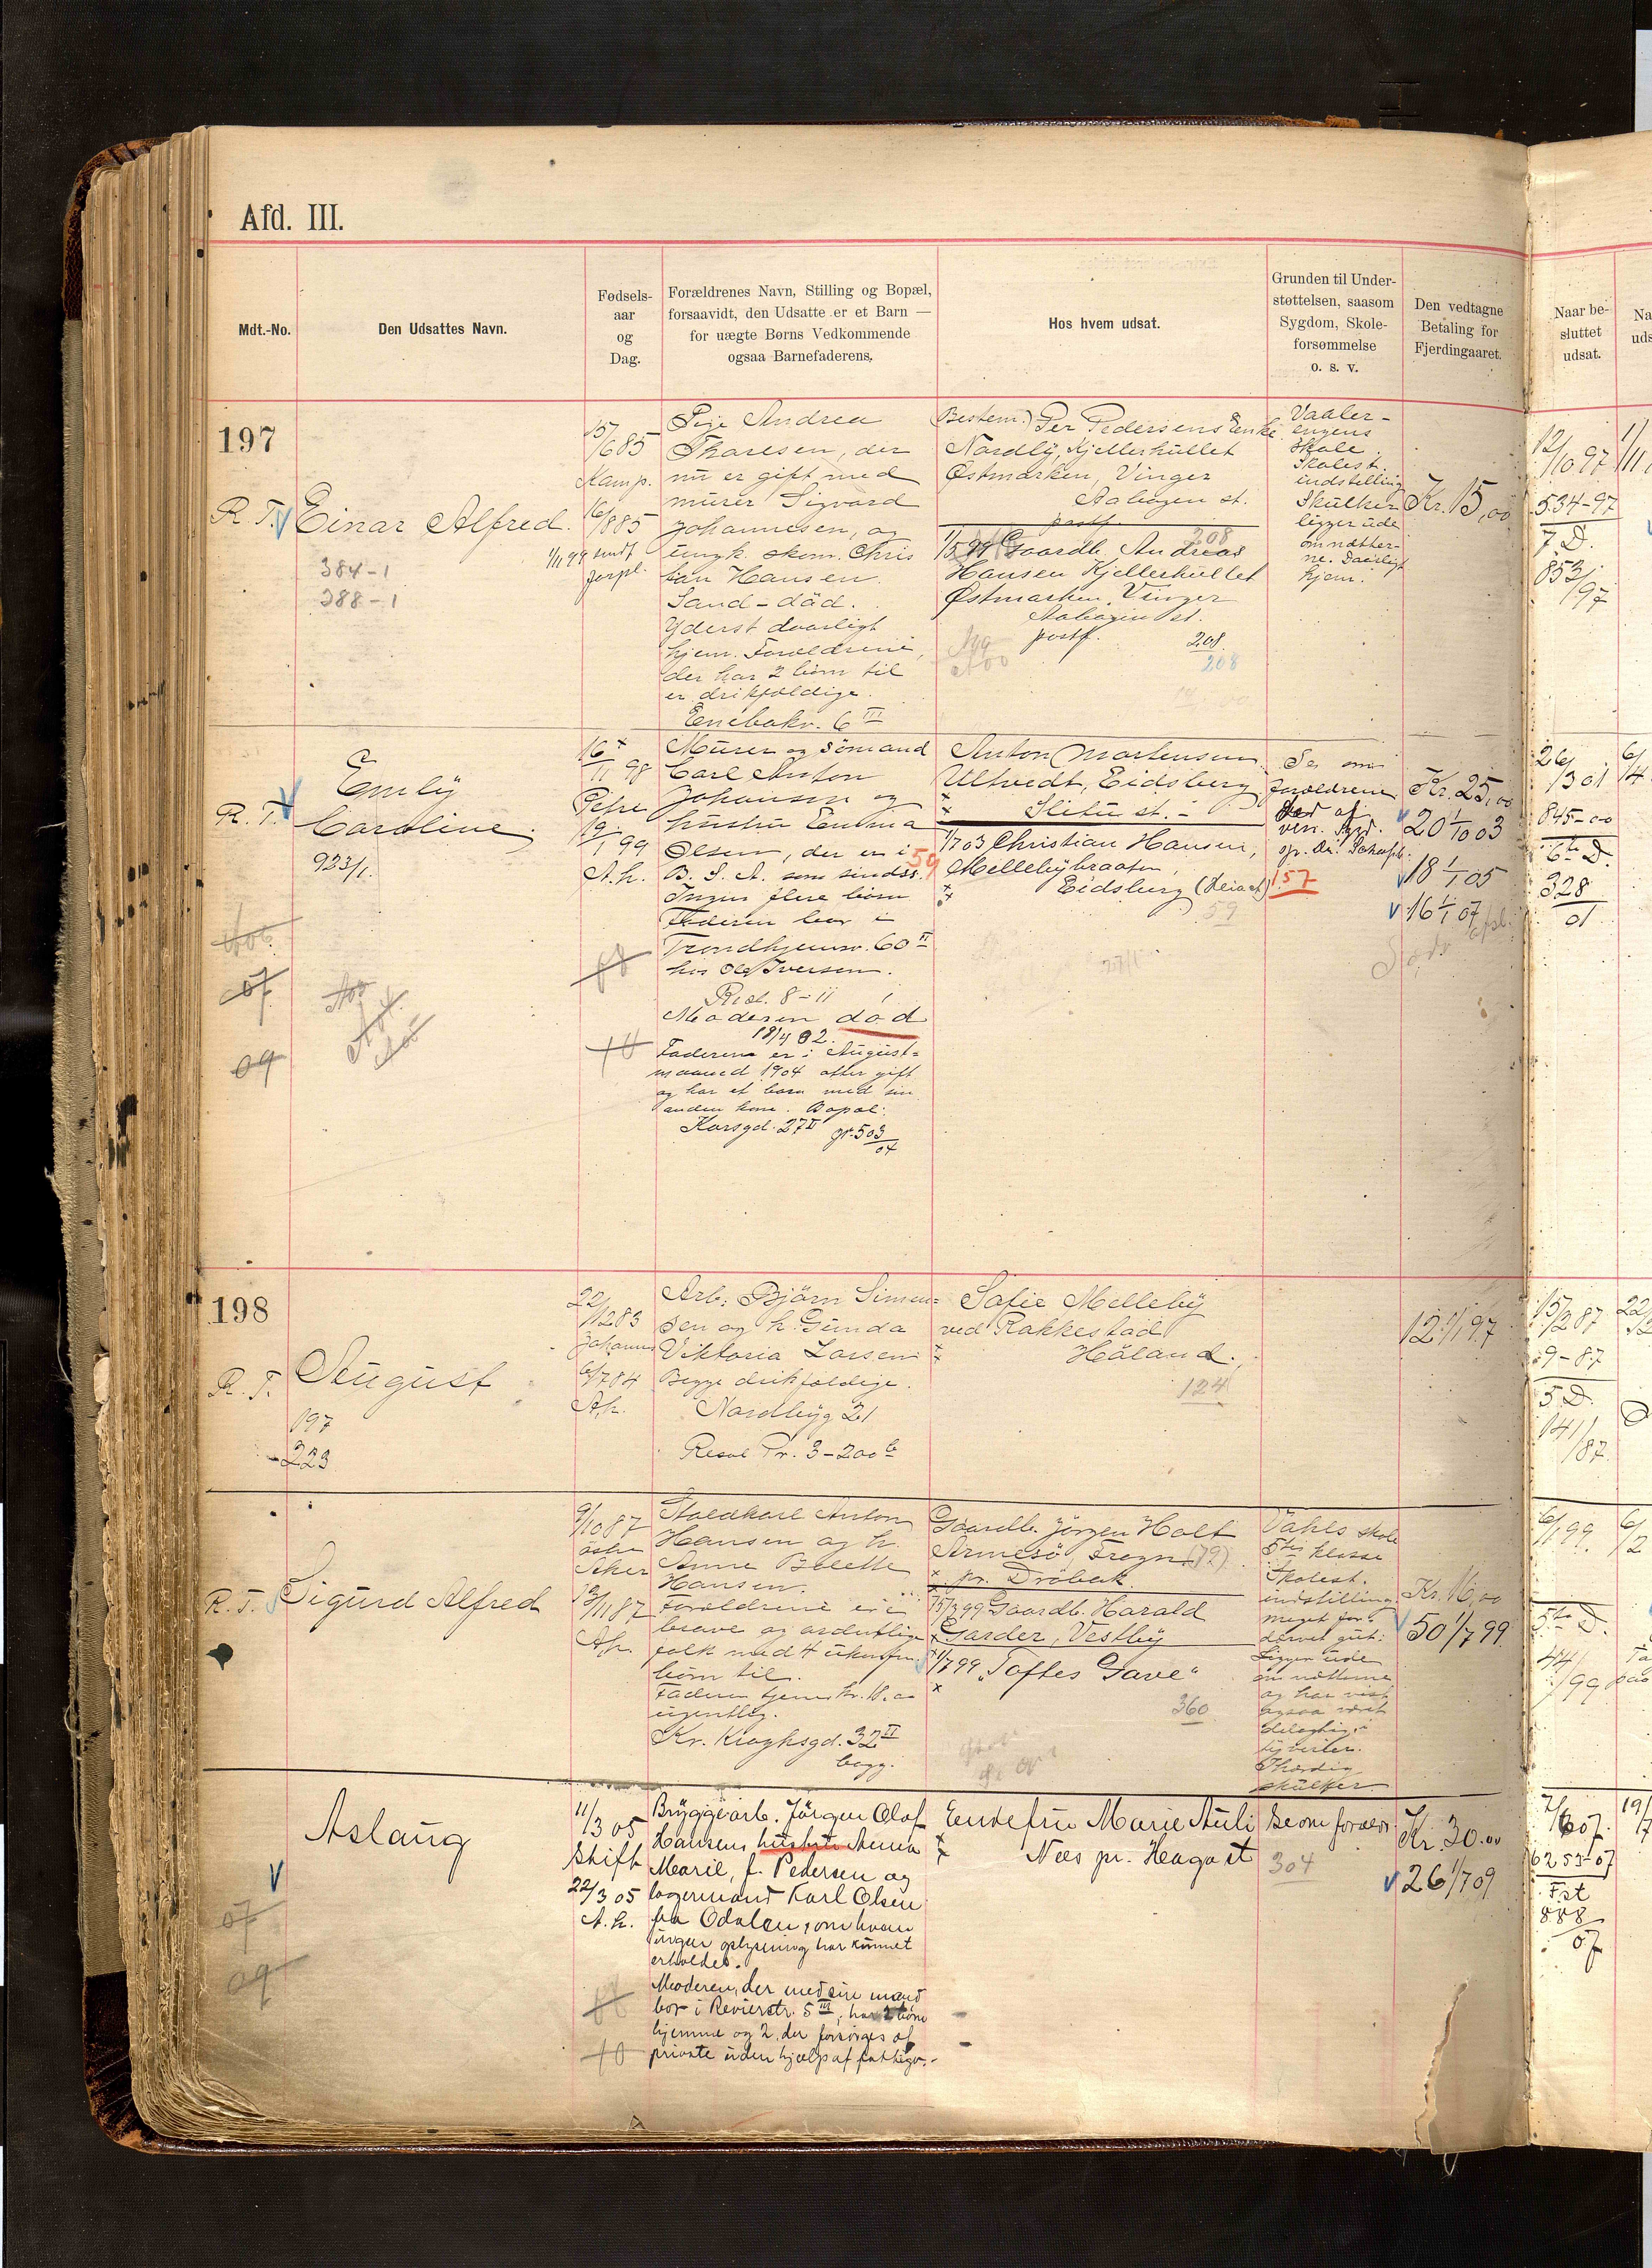 Afd. III.
Mdt.-No.
Den Udsattes Navn.
Fødsels-
aar
og
Dag.
Forældrenes Navn, Stilling og Bopæl,
forsaavidt, den Udsatte er et Barn —
for uægte Børns Vedkommende
ogsaa Barnefaderens.
Hos hvem udsat.
Grunden til Under-
støttelsen, saasom
Sygdom, Skole-
forsømmelse
o. s. v.
Den vedtagne
Betaling for
Fjerdingaaret.
Naar be-
sluttet
udsat.
197
R. T.
Einar Alfred.
384-1
388-1
15/6 85
Kamp.
16/8 85
1/11 99
Pige Andrea
Tharesen, der
nu er gift med
murer Sigvard
Johannesen, og
ungk. skom. Chris
tian Hansen
Sand - död.
Yderst daarligt
hjem. Forældrene,
der har 2 börn til
er drikfældige.
Enebakv. 6 III
Bestem.) Per Pedersens Enke
Nordby, Kjellerhullet
Østmarken, Vinger
Aabogen st.
postf.
208
1/5 99 Gaardb. Andreas
Hansen Kjellerhullet
Østmarken, Vinger
Aabogen st.
postf.
208
208
Vaaler-
engens
skole
Skolest.
indstilling
Skulker
ligger ude
om nætter-
ne. Daarligt
hjem.
Kr. 15,00
12/10 97
534-97
7 D.
853/97
R. T.
Emily
Caroline.
923/1.
07
09
16/11 98
Petre
19/1 99
A. h.
Murer og Sömand
Carl Anton
Johansen og
hustru Emma
Olsen, der er i
B. S. A. som sindss.
Ingen flere börn
Faderen bor i
Trondhjemsv. 60 II
hos Ole Iversen.
Rist. 8-11
Moderen död
18/4 02.
Faderen er i August-
maaned 1904 atter gift
og har et barn med sin
anden kone. Bopæl:
Korsgd. 27 II gr. 503/04
Anton Mortensen
Ultvedt, Eidsberg
Slitu st. -
1/7 03 Christian Hansen,
59 Mellebybraaten,
Eidsberg
59
Se om
forældrene
Død af
157
Kr. 25,00
20 1/10 03
18 1/1 05
16 1/1 07
26/3 01
845-00
6te D.
328
01
198
R. T.
August
197
-223
22/12 83
Johannes
6/7 84
A. h.
Arb. Björn Simen-
sen og h. Gunda
Viktoria Larsen
Begge drikfældige.
Nordbyg 21
Resol Pr. 3-200 b
Sofie Melleby
ved Rakkestad
Häland.
124
12 1/1 97
15/2 87
29-87
5 D.
141/87
R. T.
Sigurd Alfred
9/10 87
östre
Aker
13/11 87
A. h.
Staldkarl Anton
Hansen og h.
Anne Bolette
Hansen.
Forældrene er
brave og ordentlige
folk med 4 ukonfm.
börn til.
Faderen tjener Kr. 18,00
ugentlig.
Kr. Kroghsgd. 32 II
bagg.
Gaardb. Jörgen Holt
Arnesö, Frogn (72)
pr. Dröbak
15/3 99 Gaardb. Harald
Garder, Vestby
1/7 99 "Toftes Gave"
360
Vahls skole
5te klasse
Skolest.
indstilling
meget for-
dærvet gut:
Ligger ude
om nætterne
og har vist
ogsaa været
delagtig i
tyverier.
Ihærdig
skulker.
Kr. 16,00
50 1/7 99
6/1 99
5te D.
44/99
Aslaug
07
09
11/3 05
Skift
22/3 05
A. h.
Bryggearb. Jörgen Olaf
Hansens hustru Anna
Marie, f. Pedersen og
lagermand Karl Olsen
fra Odalen, om hvem
ingen oplysning har kunnet
erholdes.
Moderen, der med sin mand
bor i Revierstr. 5 III, har 2 börn
hjemme og 2, der forsörges af
private uden hjælp af fattigv.-
Enkefru Marie Auli
Nes pr. Haga st
304
Se om foræld.
Kr. 30.00
26 1/7 09
7/6 07.
6255-07
Fst
888
07